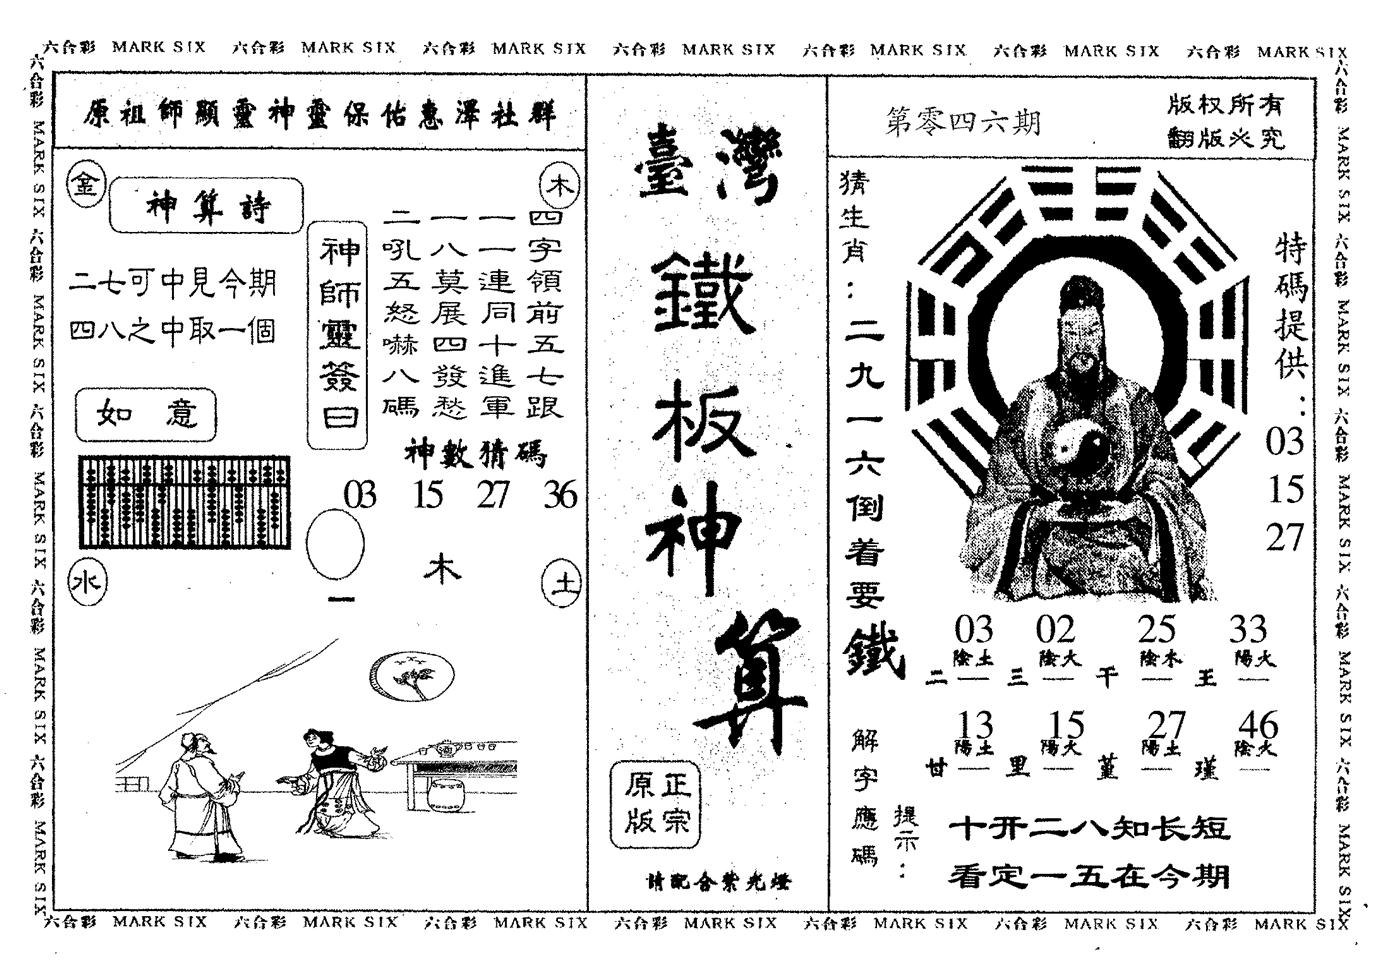 六合彩 MARK SIX 六合彩 MARK SIX 六合彩 MARK SIX 六合彩 MARK SIX 六合彩 MARK SIX 六合彩 MARK SIX 六合彩 MARK SIX
六合彩 MARK SIX 六合彩 MARK SIX 六合彩 MARK SIX 六合彩 MARK SIX 六合彩 MARK SIX
原祖師顯靈神靈保佑惠澤社群
金
木
神算詩
二七可中見今期
四八之中取一個
神師靈簽曰
四字領前五七跟
一一連同十進軍
一八莫展四發愁
二吼五怒嚇八碼
如意
神數猜碼
03 15 27 36
木
一
水
土
臺灣
鐵
板
神
算
正宗
原版
請配合紫光燈
第零四六期
版权所有
翻版必究
猜生肖：二九一六倒着要
鐵
特碼提供：
03
15
27
03 02 25 33
陰土 陰火 陰木 陽火
二 三 干 王
13 15 27 46
陽土 陽火 陽土 陰火
甘 里 堇 瑾
解字應碼
提示：
十开二八知长短
看定一五在今期
六合彩 MARK SIX 六合彩 MARK SIX 六合彩 MARK SIX 六合彩 MARK SIX 六合彩 MARK SIX
六合彩 MARK SIX 六合彩 MARK SIX 六合彩 MARK SIX 六合彩 MARK SIX 六合彩 MARK SIX 六合彩 MARK SIX 六合彩 MARK SIX